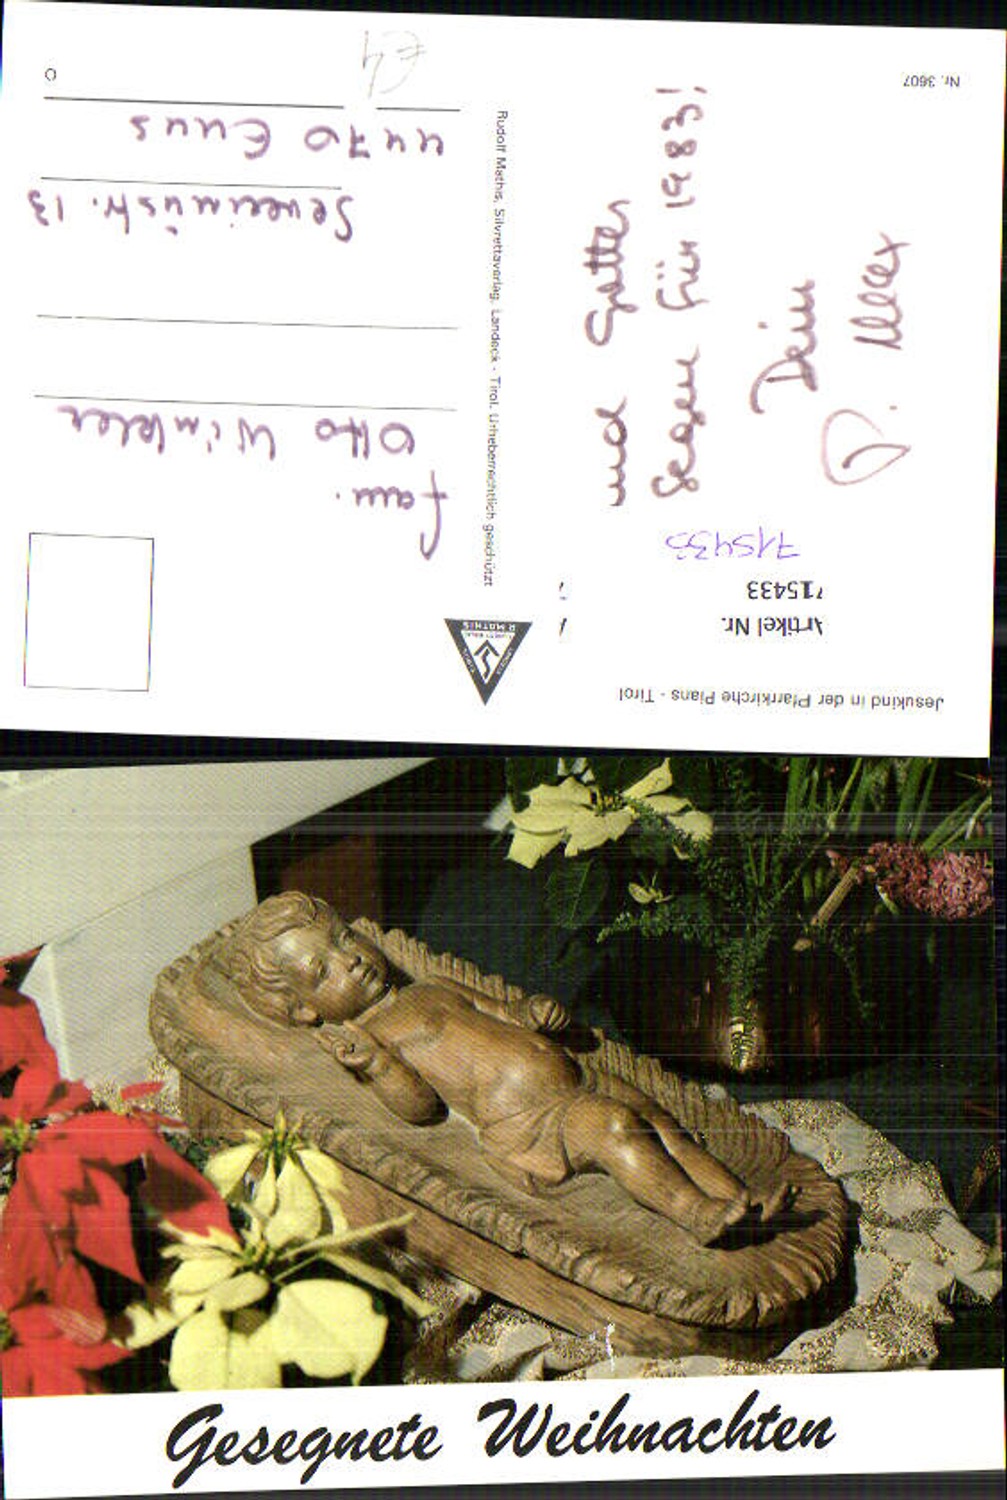 Jesukind in der Pfarrkirche Pians - Tirol
Artikel Nr.
715433
715433
und Gottes
Segen für 1983!
Dein
P. Alex
Nr. 3607
R. MATHIS
Rudolf Mathis, Silvrettaverlag, Landeck - Tirol. Urheberrechtlich geschützt
Fam.
Otto Winkler
Severinstr. 13
4470 Enns
Gesegnete Weihnachten